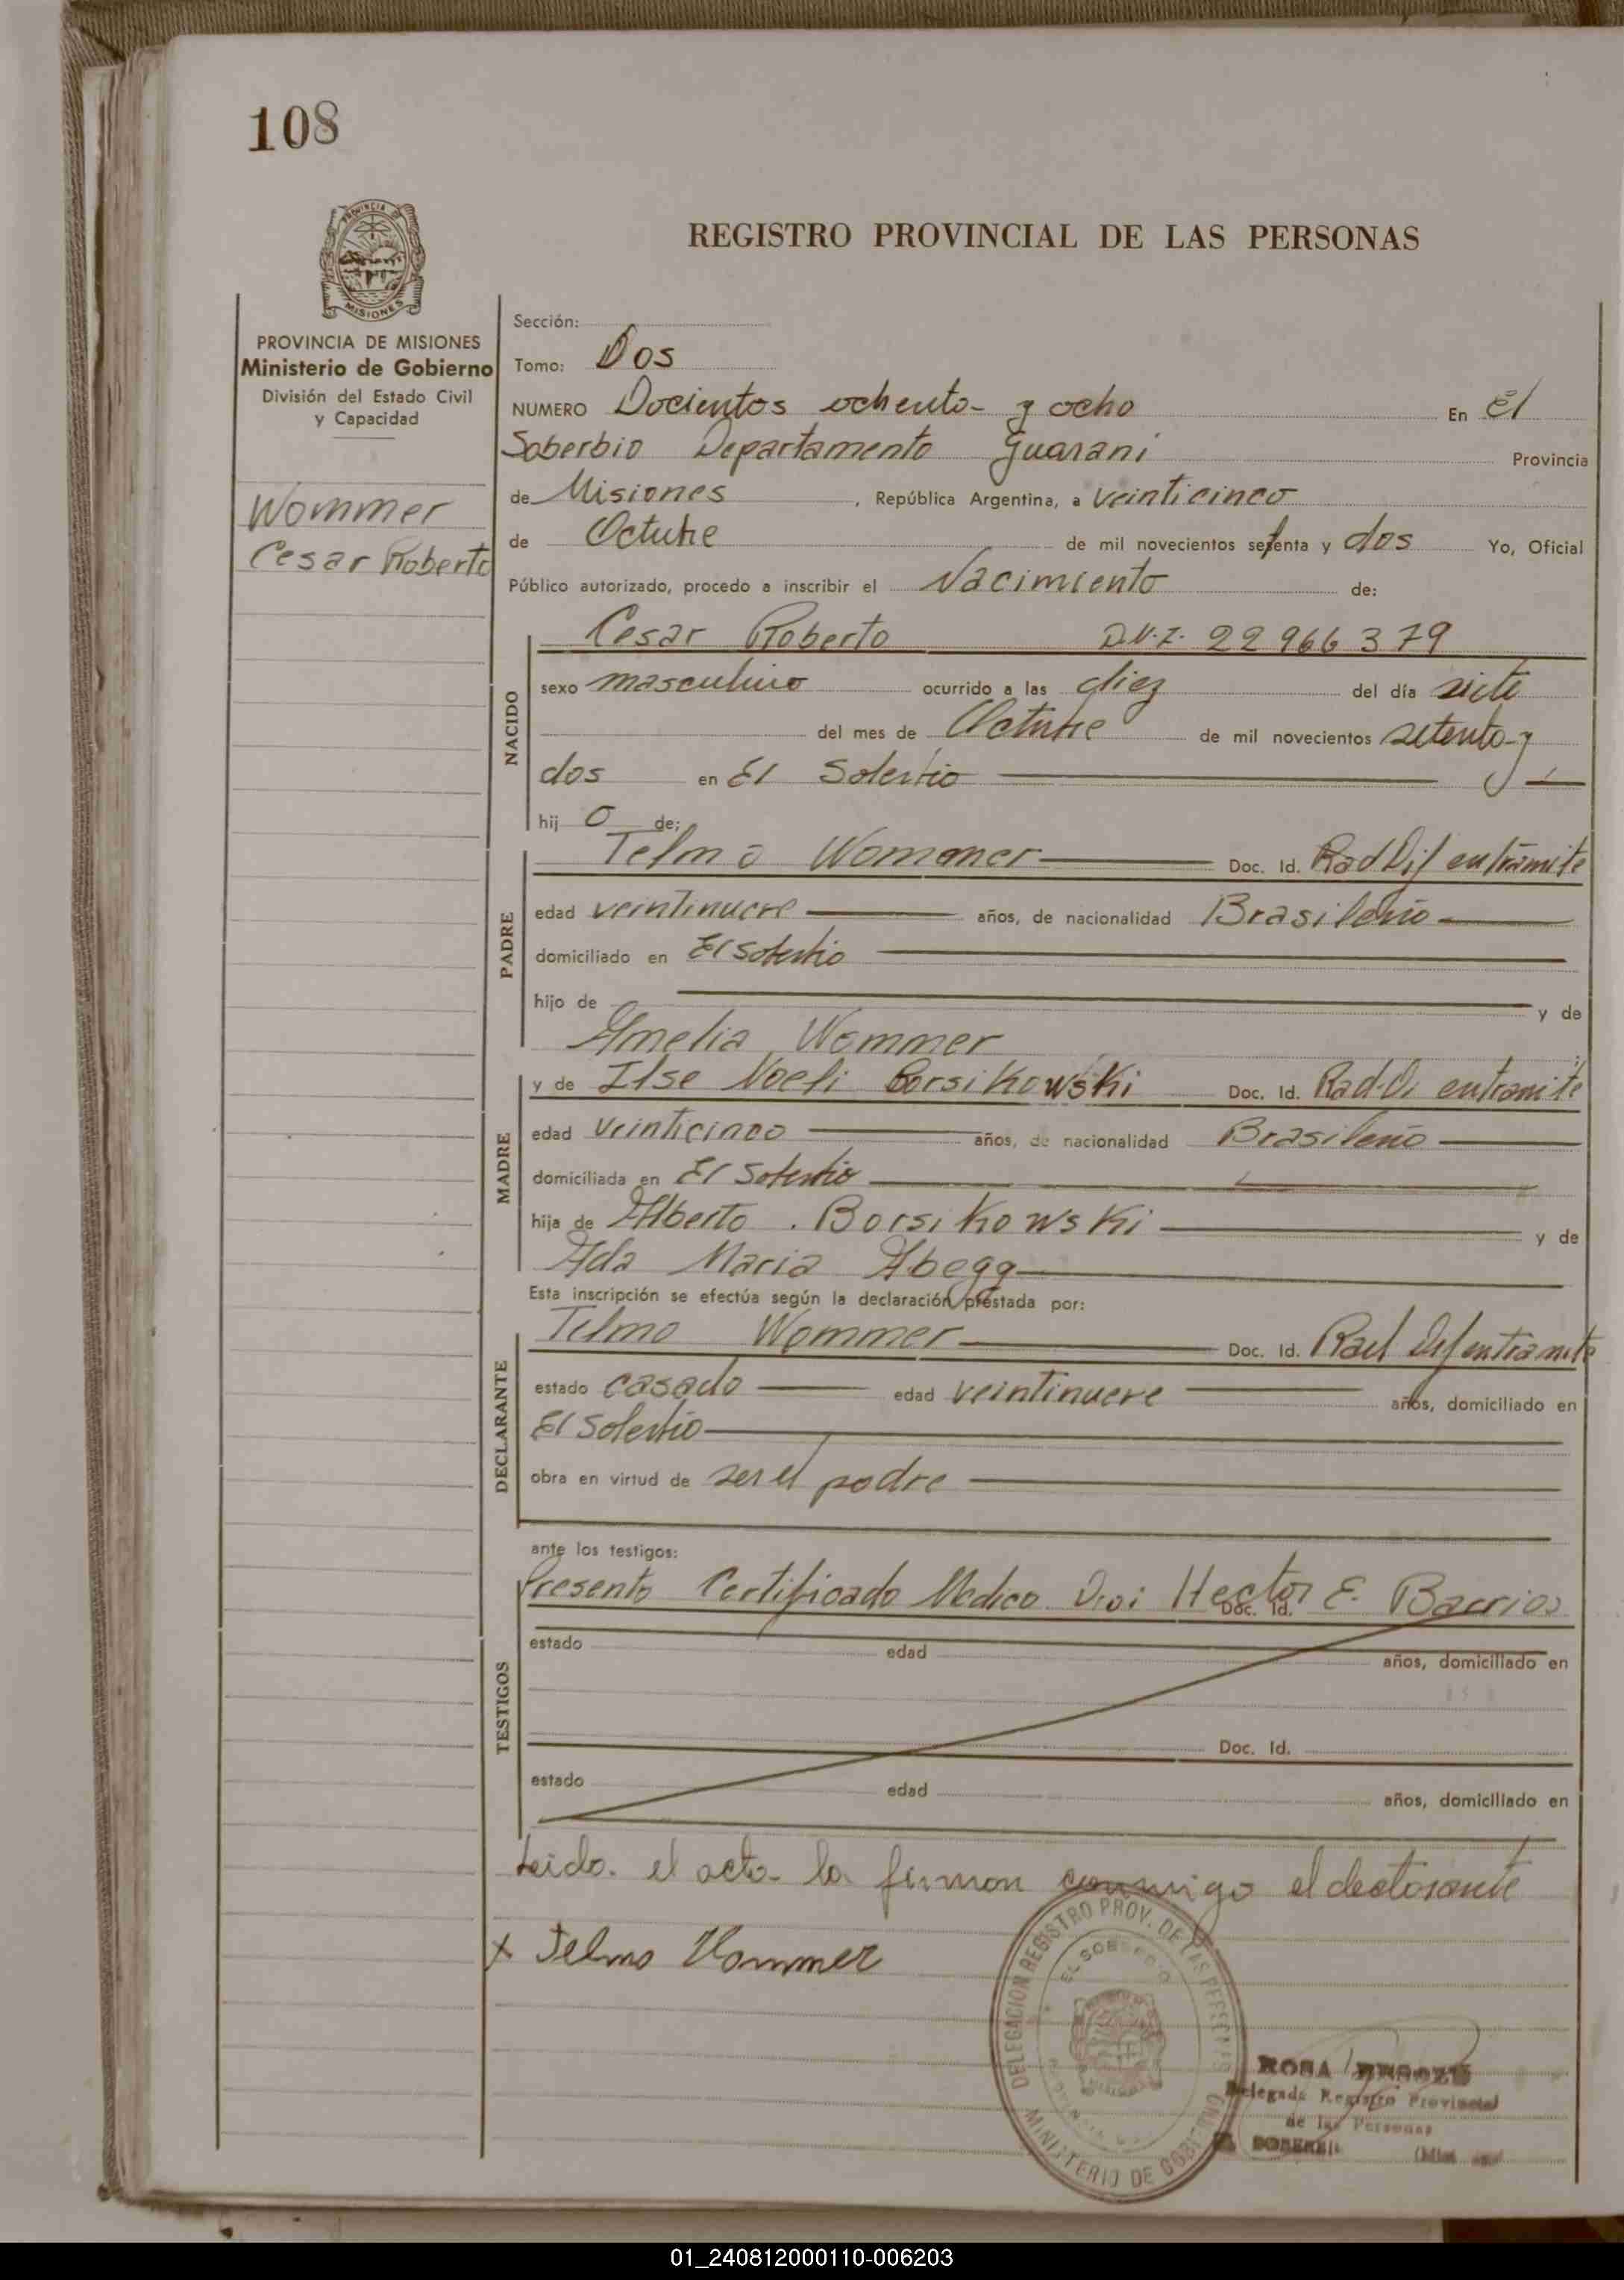 108
PROVINCIA DE
MISIONES
REGISTRO PROVINCIAL DE LAS PERSONAS
PROVINCIA DE MISIONES
Ministerio de Gobierno
División del Estado Civil
y Capacidad
Wommer
Cesar Roberto
Sección:
Tomo: Dos
NUMERO Docientos ochenta y ocho En El
Soberbio Departamento Guarani Provincia
de Misiones, República Argentina, a veinticinco
de Octubre de mil novecientos setenta y dos Yo, Oficial
Público autorizado, procedo a inscribir el Nacimiento de:
NACIDO
Cesar Roberto D.N.I. 22 966 379
sexo masculino ocurrido a las diez del día siete
del mes de Octubre de mil novecientos setenta y
dos en El Soberbio
hij o de:
PADRE
Telmo Wommer Doc. Id. Rad Dif en tramite
edad veintinueve años, de nacionalidad Brasileño
domiciliado en El Soberbio
hijo de y de
Amelia Wommer
MADRE
y de Ilse Noeli Borsikowski Doc. Id. Rad. Di en tramite
edad veinticinco años, de nacionalidad Brasileño
domiciliada en El Soberbio
hija de Alberto Borsikowski y de
Ada Maria Abegg
Esta inscripción se efectúa según la declaración prestada por:
DECLARANTE
Telmo Wommer Doc. Id. Rad Dif en tramite
estado casado edad veintinueve años, domiciliado en
El Soberbio
obra en virtud de ser el padre
ante los testigos:
TESTIGOS
Presento Certificado Medico Hector E. Barrios
Doc. Id.
estado edad años, domiciliado en
Doc. Id.
estado edad años, domiciliado en
Leido el acta la firman conmigo el declarante
x Telmo Wommer
DELEGACION REGISTRO PROV. DE LAS PERSONAS
EL SOBERBIO
MINISTERIO DE GOBIERNO
ROSA
Delegada Registro Provincial
de las Personas
01_240812000110-006203